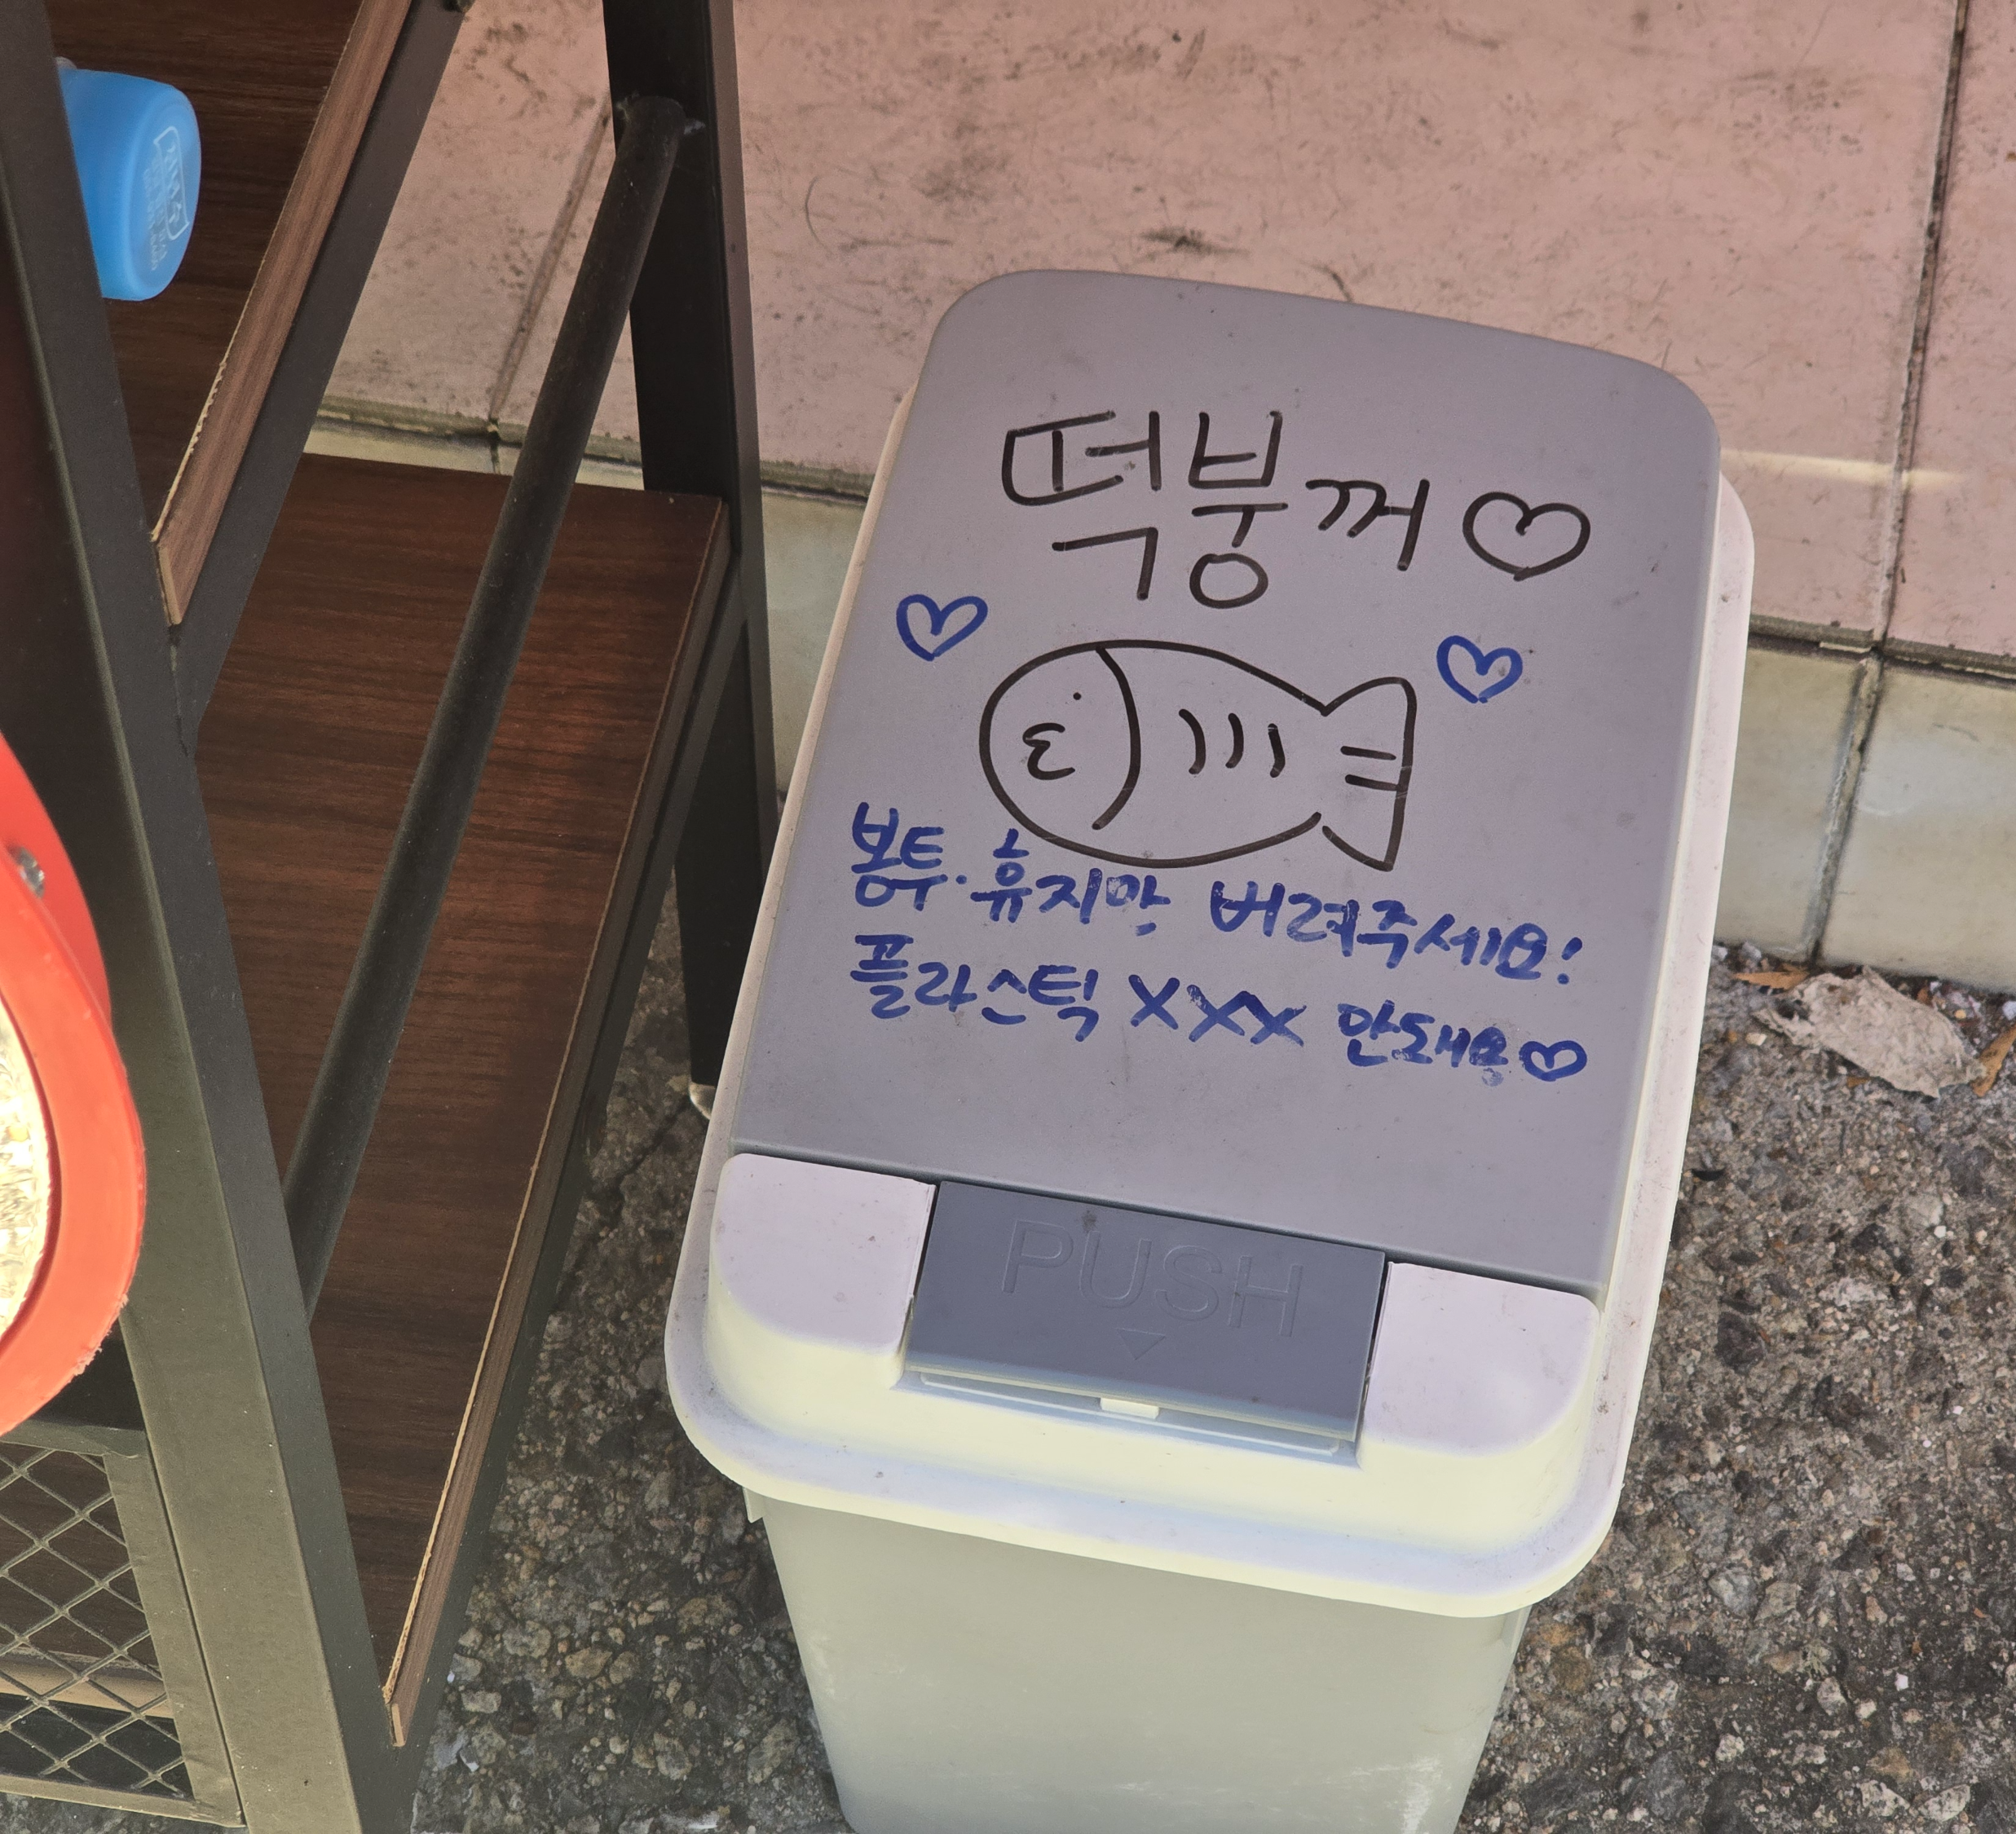 떡붕꺼♡
봉투·휴지만 버려주세요!
플라스틱 XXX 안돼요♡
PUSH